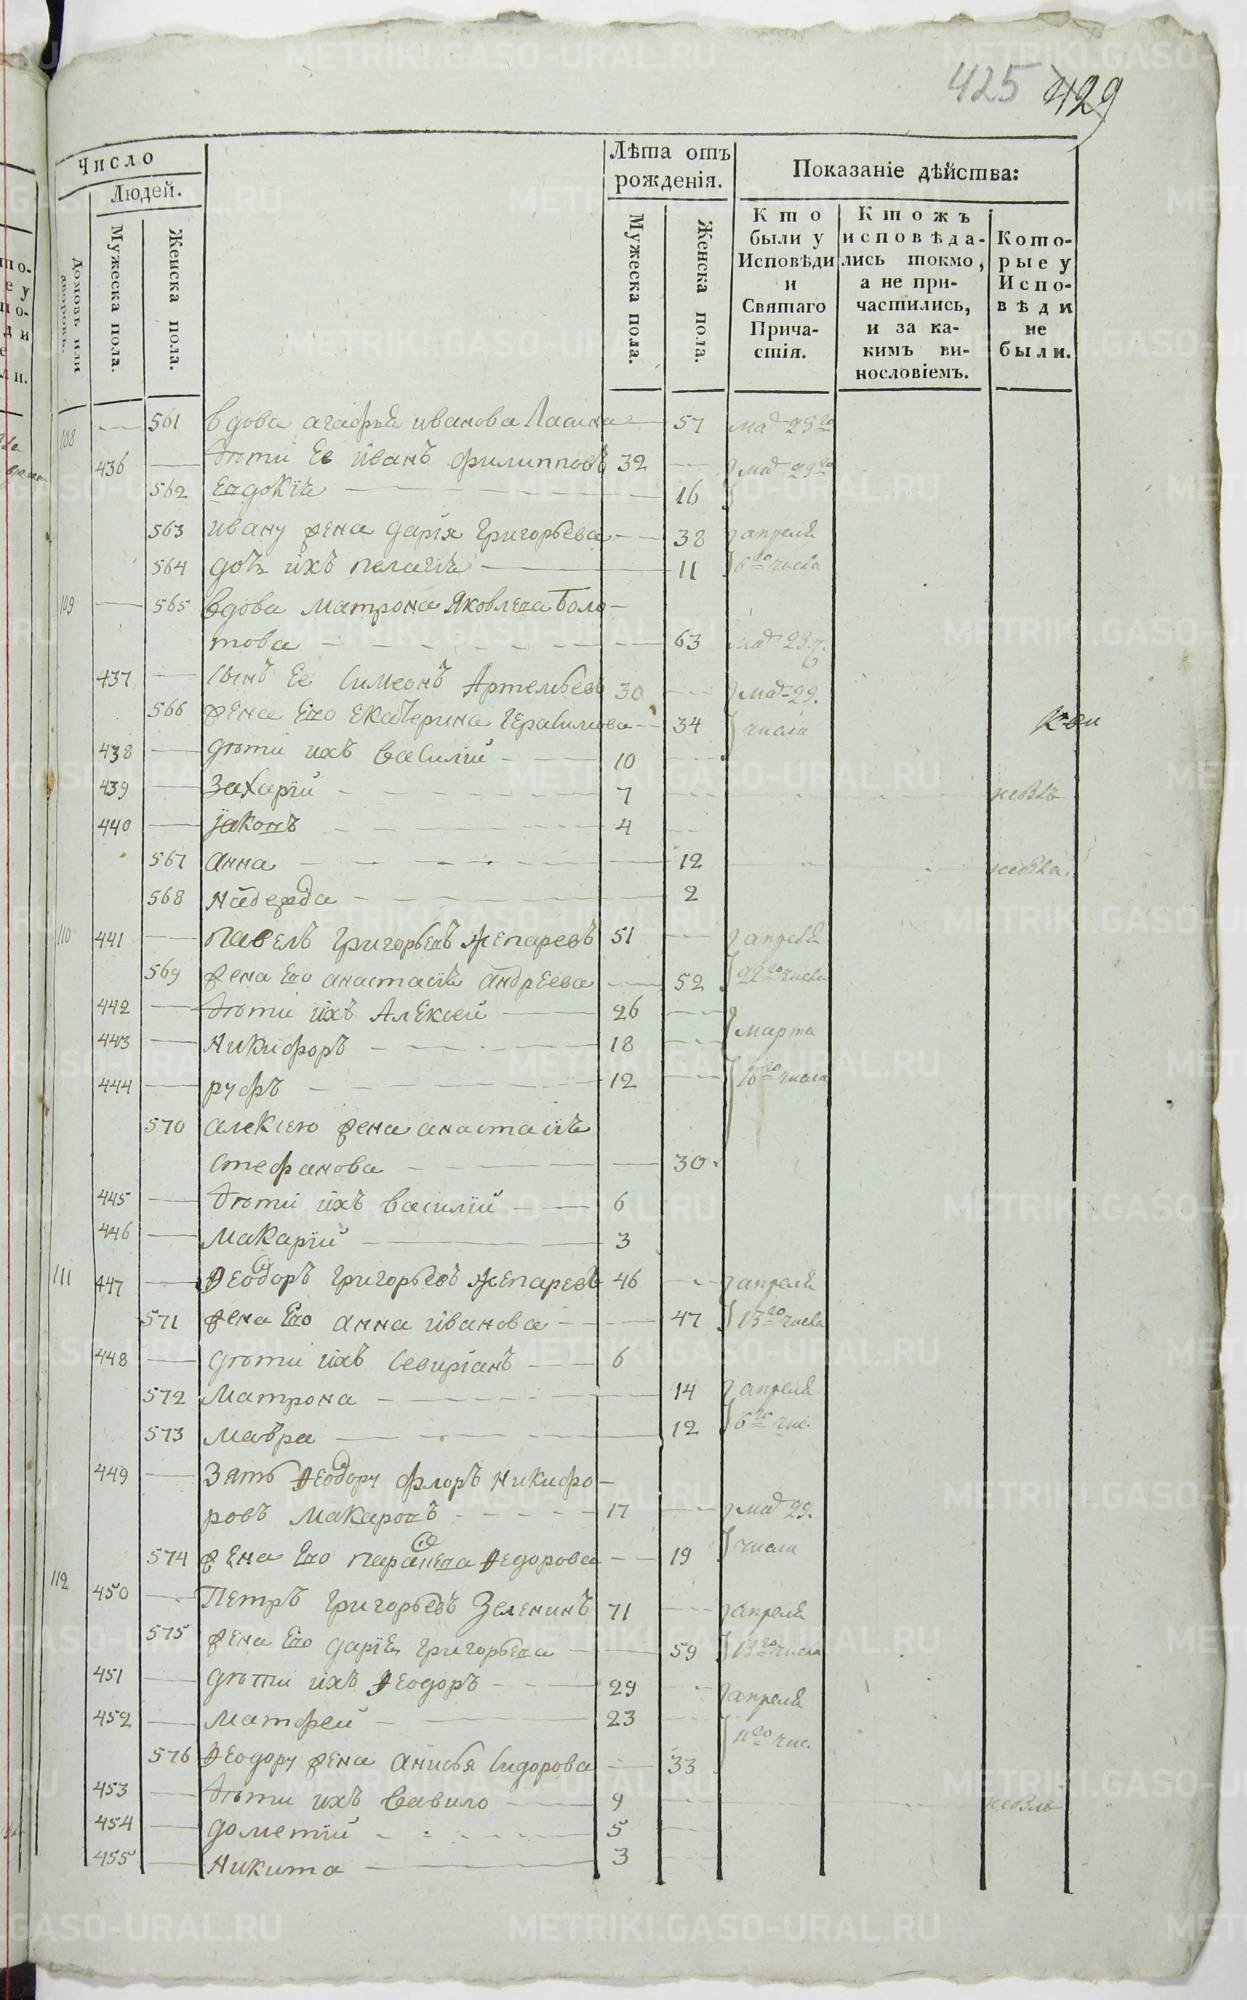 425 429
Число
Людей.
Домовъ или дворовъ.
Мужеска пола.
Женска пола.
Лѣта отъ рожденія.
Мужеска пола.
Женска пола.
Показаніе дѣйства:
Кто были у Исповѣди и Святаго Прича-стія.
Ктожъ исповѣда-лись токмо, а не при-частились, и за ка-кимъ ви-нословіемъ.
Кото-рые у Испо-вѣди не были.
108 — 561 вдова агафья иванова — 57
436 — дѣти Ее иванъ филипповъ 32 —
562 Евдокія — 16
563 ивану жена дарія григорьева — 38 апреля
564 дочь ихъ пелагія — 11 6го числа
109 — 565 вдова матрона яковлева Боло-
това — 63
437 — сынъ Ее Симеонъ Артемьевъ 30 —
566 жена Его Екатерина Герасимова — 34 числа
438 — дѣти ихъ Василій — 10
439 — Захарій — 7
440 — Іаковъ — 4 —
567 анна — 12
568 надежда — 2
110 441 — павелъ григорьевъ жепаревъ 51 — апреля
569 жена Его анастасія андреева — 52 22го числа
442 — дѣти ихъ Алексей — 26 — марта
443 — Никифоръ — 18 —
444 — руфъ — 12 — 16го числа
570 алексею жена анастасія
стефанова — 30.
445 — дѣти ихъ василій — 6
446 — макарій — 3
111 447 — Феодоръ григорьевъ жепаревъ 46 — апреля
571 жена Его анна иванова — 47 13го числа
448 — дѣти ихъ Севиріанъ — 6
572 матрона — 14 апреля
573 мавра — 12 6го чис.
449 — Зять Феодору флоръ Никифо-
ровъ макаровъ — 17 — маа 29.
574 жена Его параскева Федорова — 19 числа
112 450 — Петръ григорьевъ Зеленинъ 71 — апреля
575 жена Его дарія григорьева — 59 13го числа
451 — дѣти ихъ Феодоръ — 29 — апреля
452 — матфей — 23 — 11го чис.
576 Феодору жена анисья Сидорова — 33
453 — дѣти ихъ Вавило — 9 —
454 — дометій — 5 —
455 — Никита — 3 —
METRIKI.GASO-URAL.RU